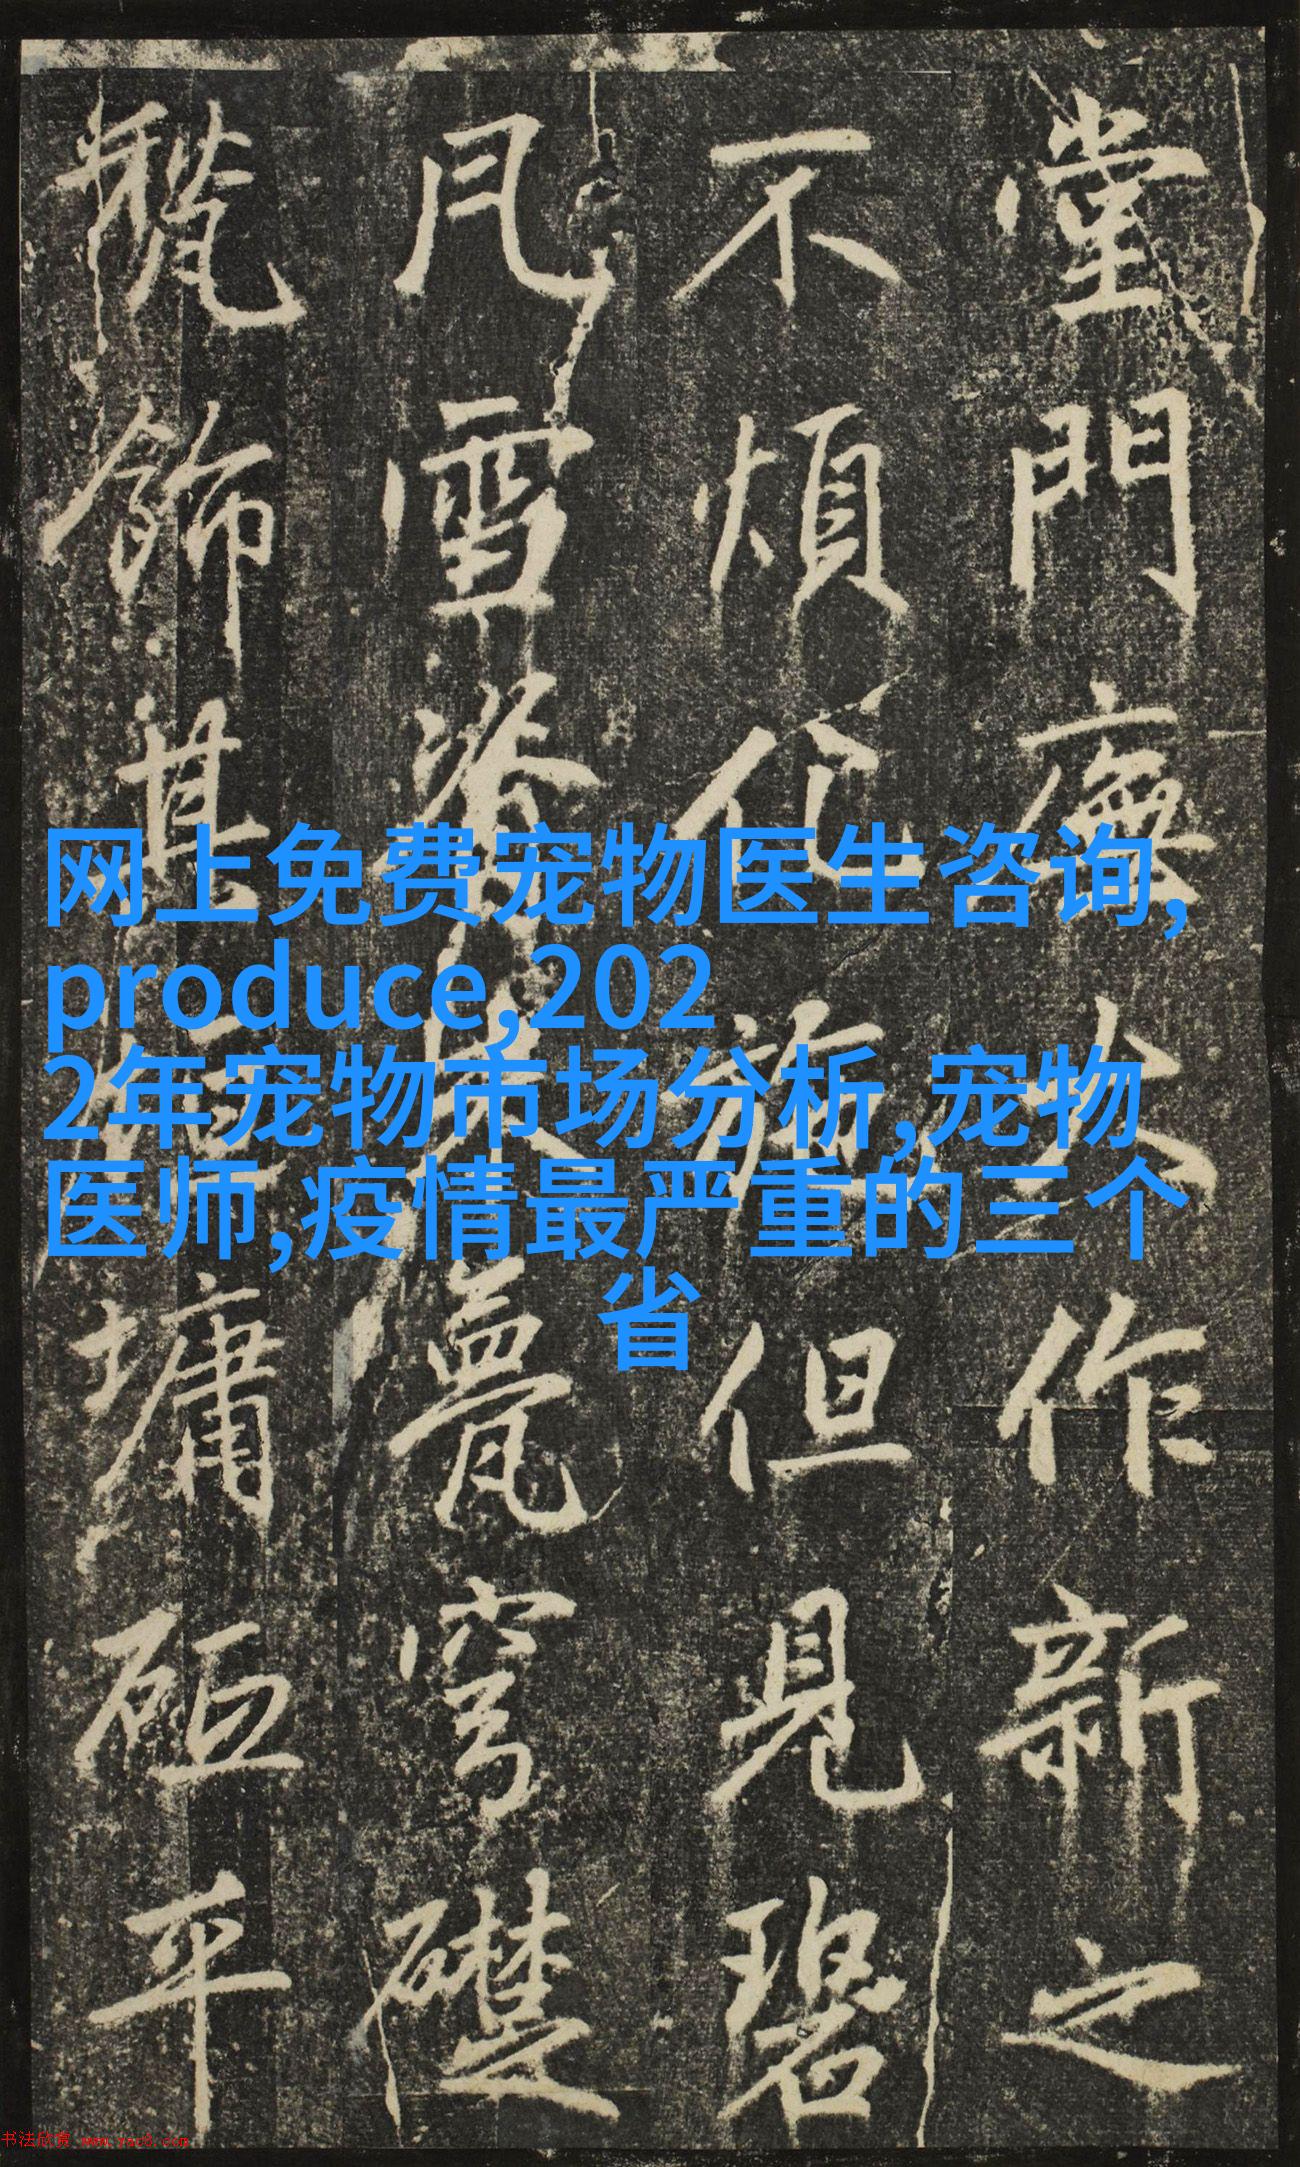 堂門廡大作新之
不煩化施但見碧
雪甍穹礎
飾其墉平
网上免费宠物医生咨询,
produce,202
2年宠物市场分析,宠物
医师,疫情最严重的三个
省
书法欣赏 www.yac8.com